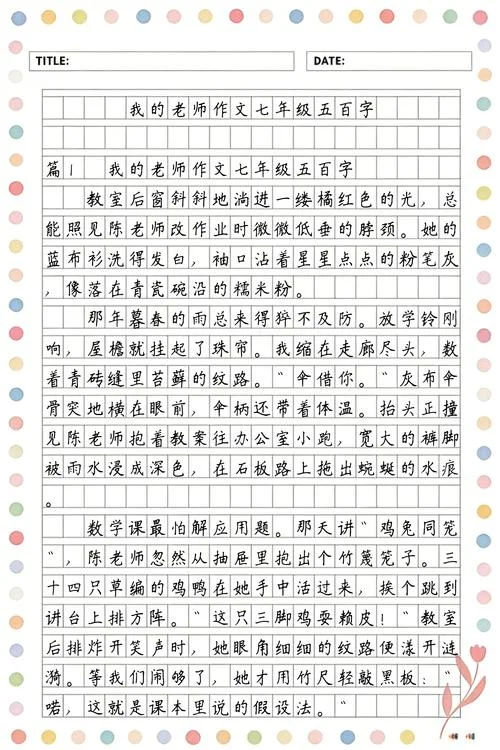 TITLE:
DATE:
我的老师作文七年级五百字
篇1 我的老师作文七年级五百字
教室后窗斜斜地淌进一缕橘红色的光，总
能照见陈老师改作业时微微低垂的脖颈。她的
蓝布衫洗得发白，袖口沾着星星点点的粉笔灰
，像落在青瓷碗沿的糯米粉。
那年暮春的雨总来得猝不及防。放学铃刚
响，屋檐就挂起了珠帘。我缩在走廊尽头，数
着青砖缝里苔藓的纹路。“伞借你。”灰布伞
骨突地横在眼前，伞柄还带着体温。抬头正撞
见陈老师抱着教案往办公室小跑，宽大的裤脚
被雨水浸成深色，在石板路上拖出蜿蜒的水痕
。
数学课最怕解应用题。那天讲“鸡兔同笼
”，陈老师忽然从抽屉里抱出个竹篾笼子。三
十四只草编的鸡鸭在她手中活过来，挨个跳到
讲台上排方阵。“这只三脚鸡耍赖皮！”教室
后排炸开笑声时，她眼角细细的纹路便漾开涟
漪。等我们闹够了，她才用竹尺轻敲黑板：“
喏，这就是课本里说的假设法。”